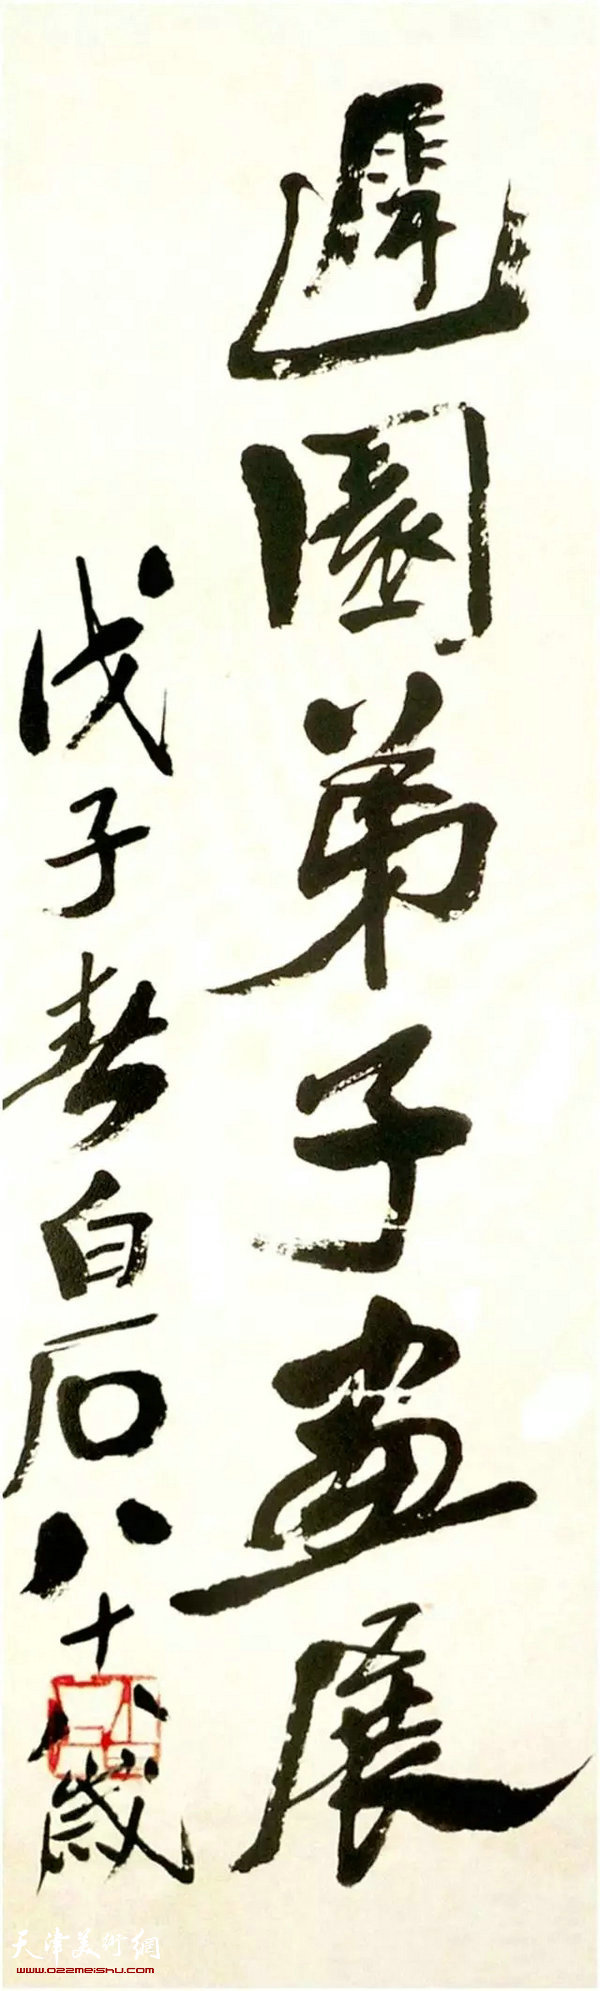 遲園弟子畫展
戊子春白石八十八歲
天津美術網
www.022meishu.com